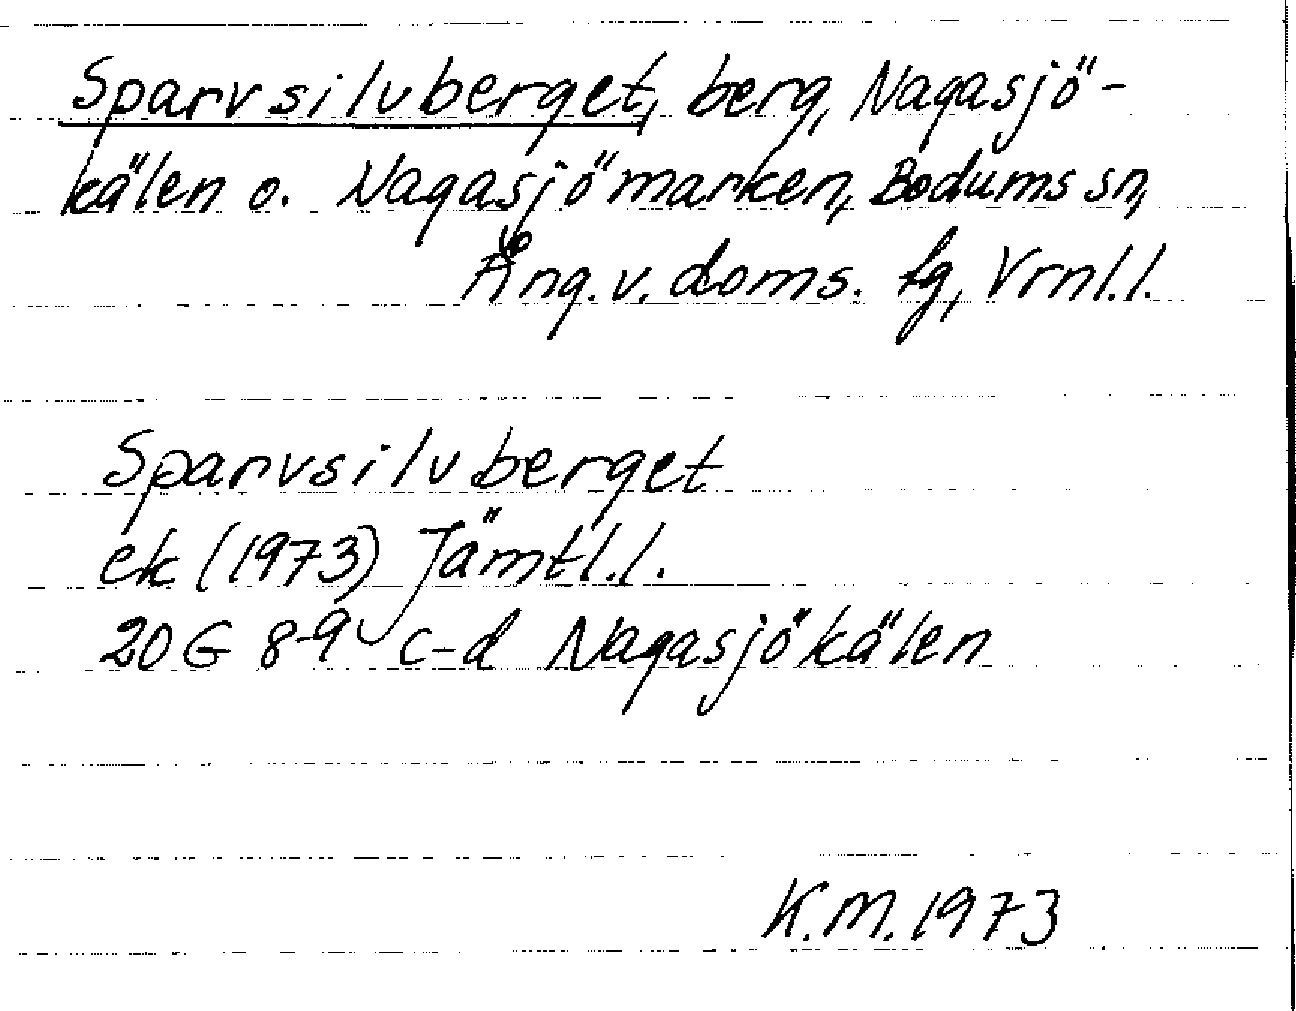 Sparvsilvberget, berg, Nagasjö-
kälen o. Nagasjömarken, Bodums sn,
Ång.v. doms. fg, Vrnl.l.
Sparvsilvberget
ek (1973) Jämtl.l.
20G 8-9 c-d Nagasjökälen
K.M. 1973